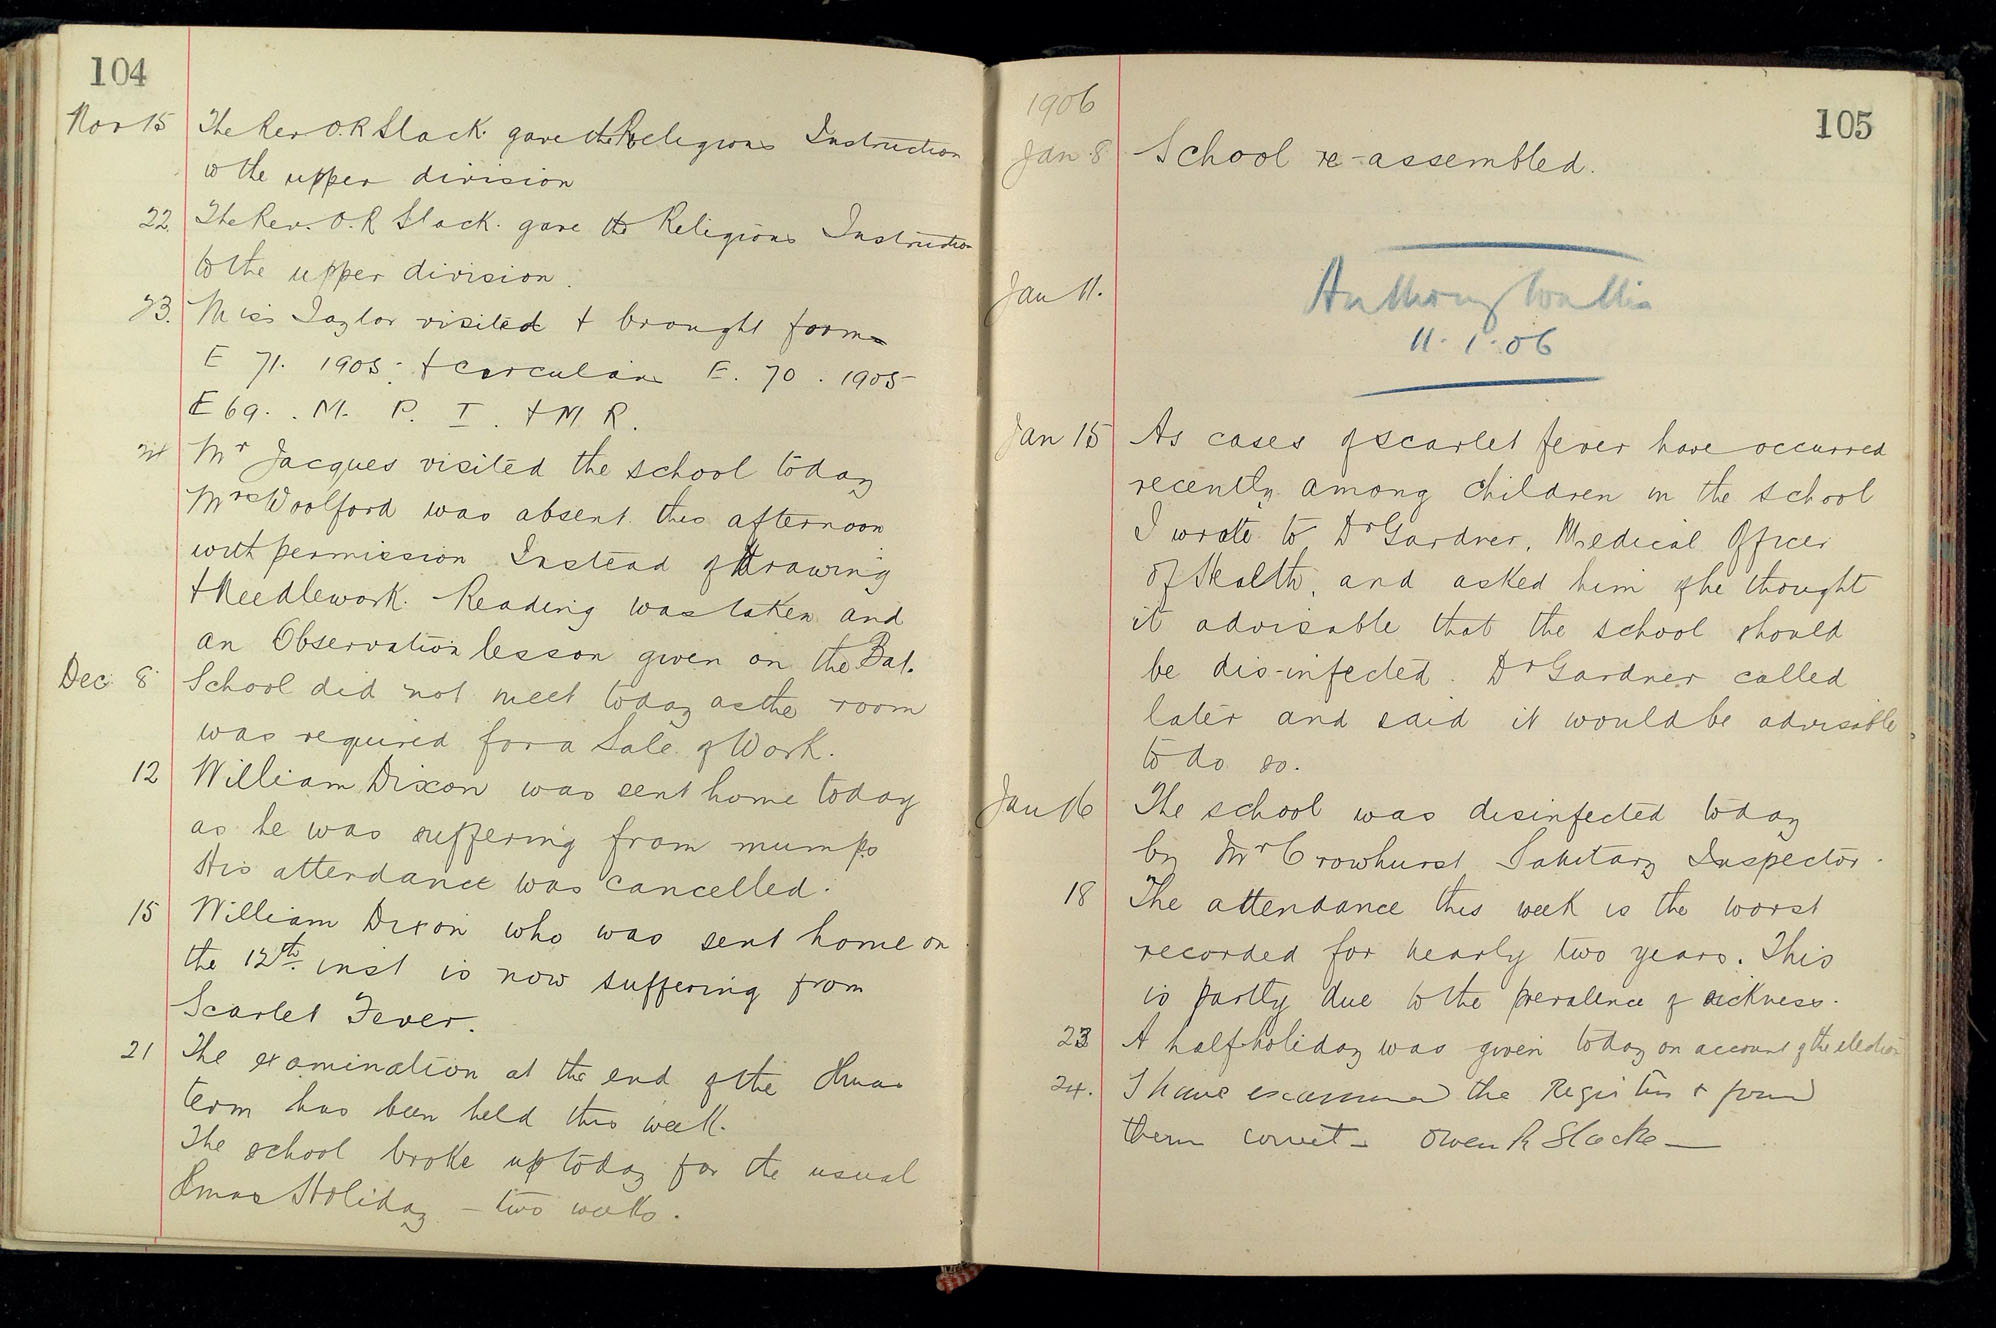 104
Nov 15 The Rev O.R Slack gave the Religious Instruction
to the upper division
22. The Rev. O.R Slack. gave the Religious Instruction
to the upper division.
23. Miss Taylor visited & brought forms
E 71. 1905. & circulars E. 70. 1905
E 69. . M. P. I. & M R.
24 Mr Jacques visited the school today
Mrs Woolford was absent this afternoon
with permission Instead of Drawing
& Needlework. Reading was taken and
an Observation lesson given on the Bat.
Dec 8 School did not meet today as the room
was required for a Sale of Work.
12 William Dixon was sent home today
as he was suffering from mumps
His attendance was cancelled.
15 William Dixon who was sent home on
the 12th inst is now suffering from
Scarlet Fever.
21 The examination at the end of the Xmas
term has been held this week.
The school broke up today for the usual
Xmas Holiday – two weeks.
105
1906
Jan 8 School re-assembled.
Jan 11. Anthony Wallis
11. 1. 06
Jan 15 As cases of scarlet fever have occurred
recently among children in the school
I wrote to Dr Gardner, Medical Officer
of Health, and asked him if he thought
it advisable that the school should
be dis-infected. Dr Gardner called
later and said it would be advisable
to do so.
Jan 16 The school was disinfected today
by Mr Crowhurst Sanitary Inspector.
18 The attendance this week is the worst
recorded for nearly two years. This
is partly due to the prevalence of sickness.
23 A half-holiday was given today on account of the election
24. I have examined the Registers & found
them correct – Owen R Slacke –